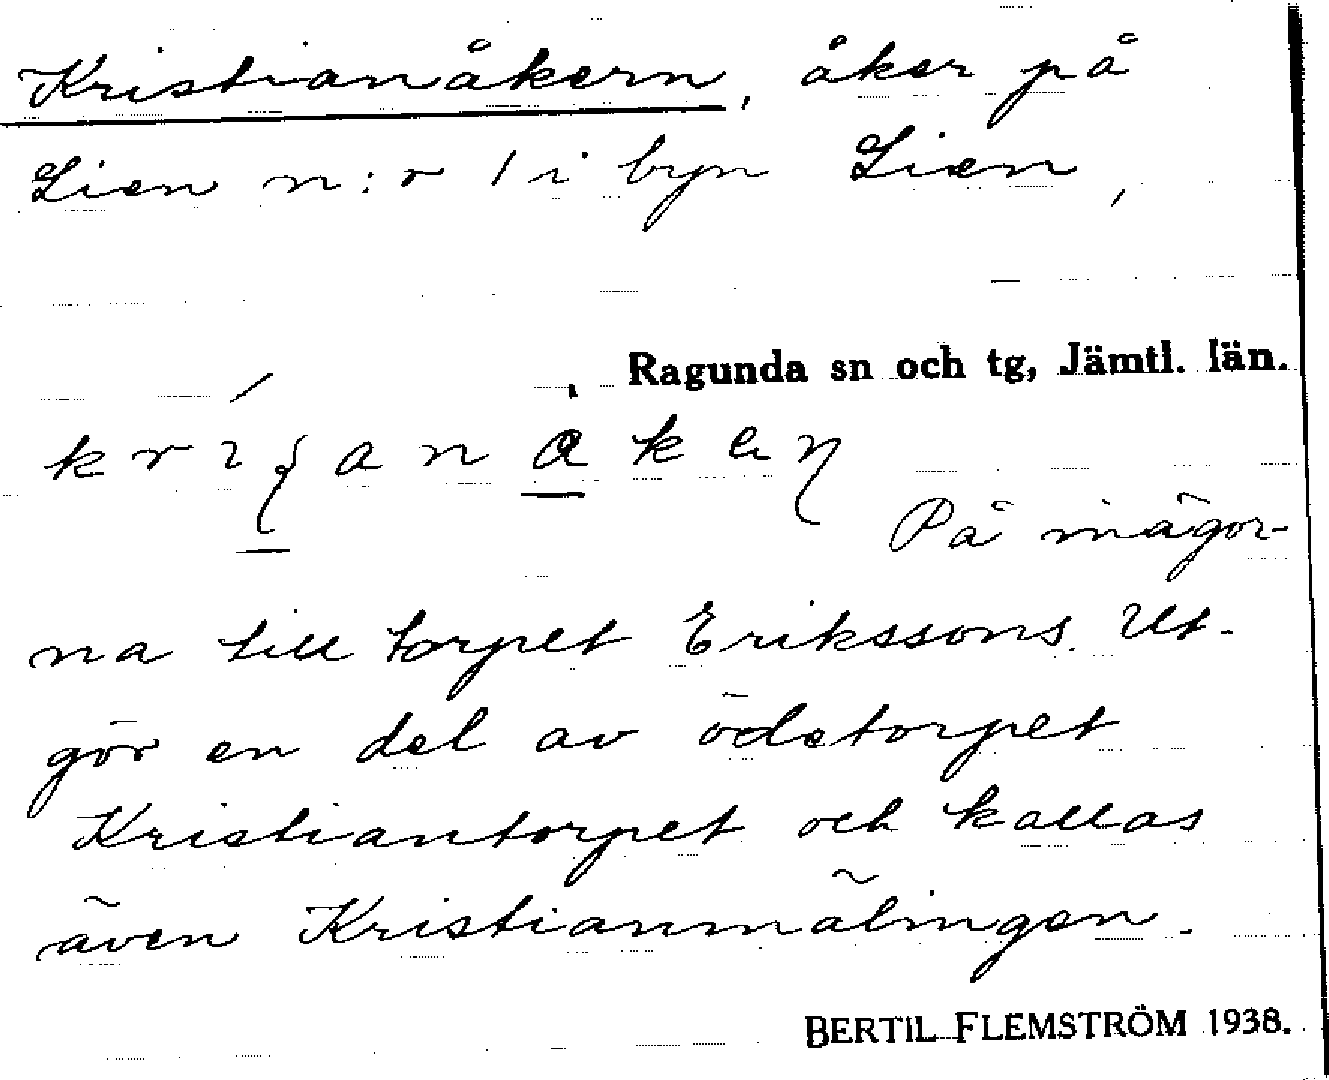 Kristianåkern, åker på
Lien n:r 1 i byn Lien,
Ragunda sn och tg, Jämtl. län.
På inägor-
na till torpet Erikssons. Ut-
gör en del av ödetorpet
Kristiantorpet och kallas
även Kristianmälingen.
BERTIL FLEMSTRÖM 1938.